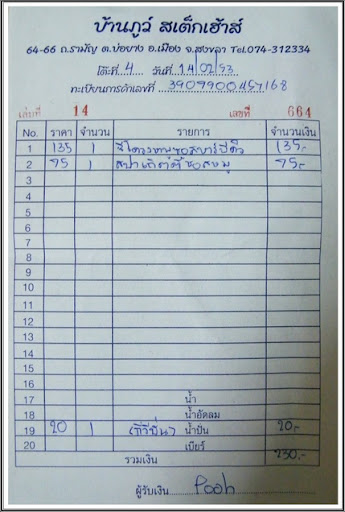 บ้านภูว์ สเต็กเฮ้าส์
64-66 ถ.รามัญ ต.บ่อยาง อ.เมือง จ.สงขลา Tel.074-312334
โต๊ะที่ 4 วันที่ 14/02/53
ทะเบียนการค้าเลขที่ 3909900457168
เล่มที่ 14 เลขที่ 664
No. ราคา จำนวน รายการ จำนวนเงิน
1 135 1 135.-
2 75 1 75.-
3
4
5
6
7
8
9
10
11
12
13
14
15
16
17 น้ำ
18 น้ำอัดลม
19 20 1 (กีวีปั่น) น้ำปั่น 20.-
20 เบียร์
รวมเงิน 230.-
ผู้รับเงิน Pooh